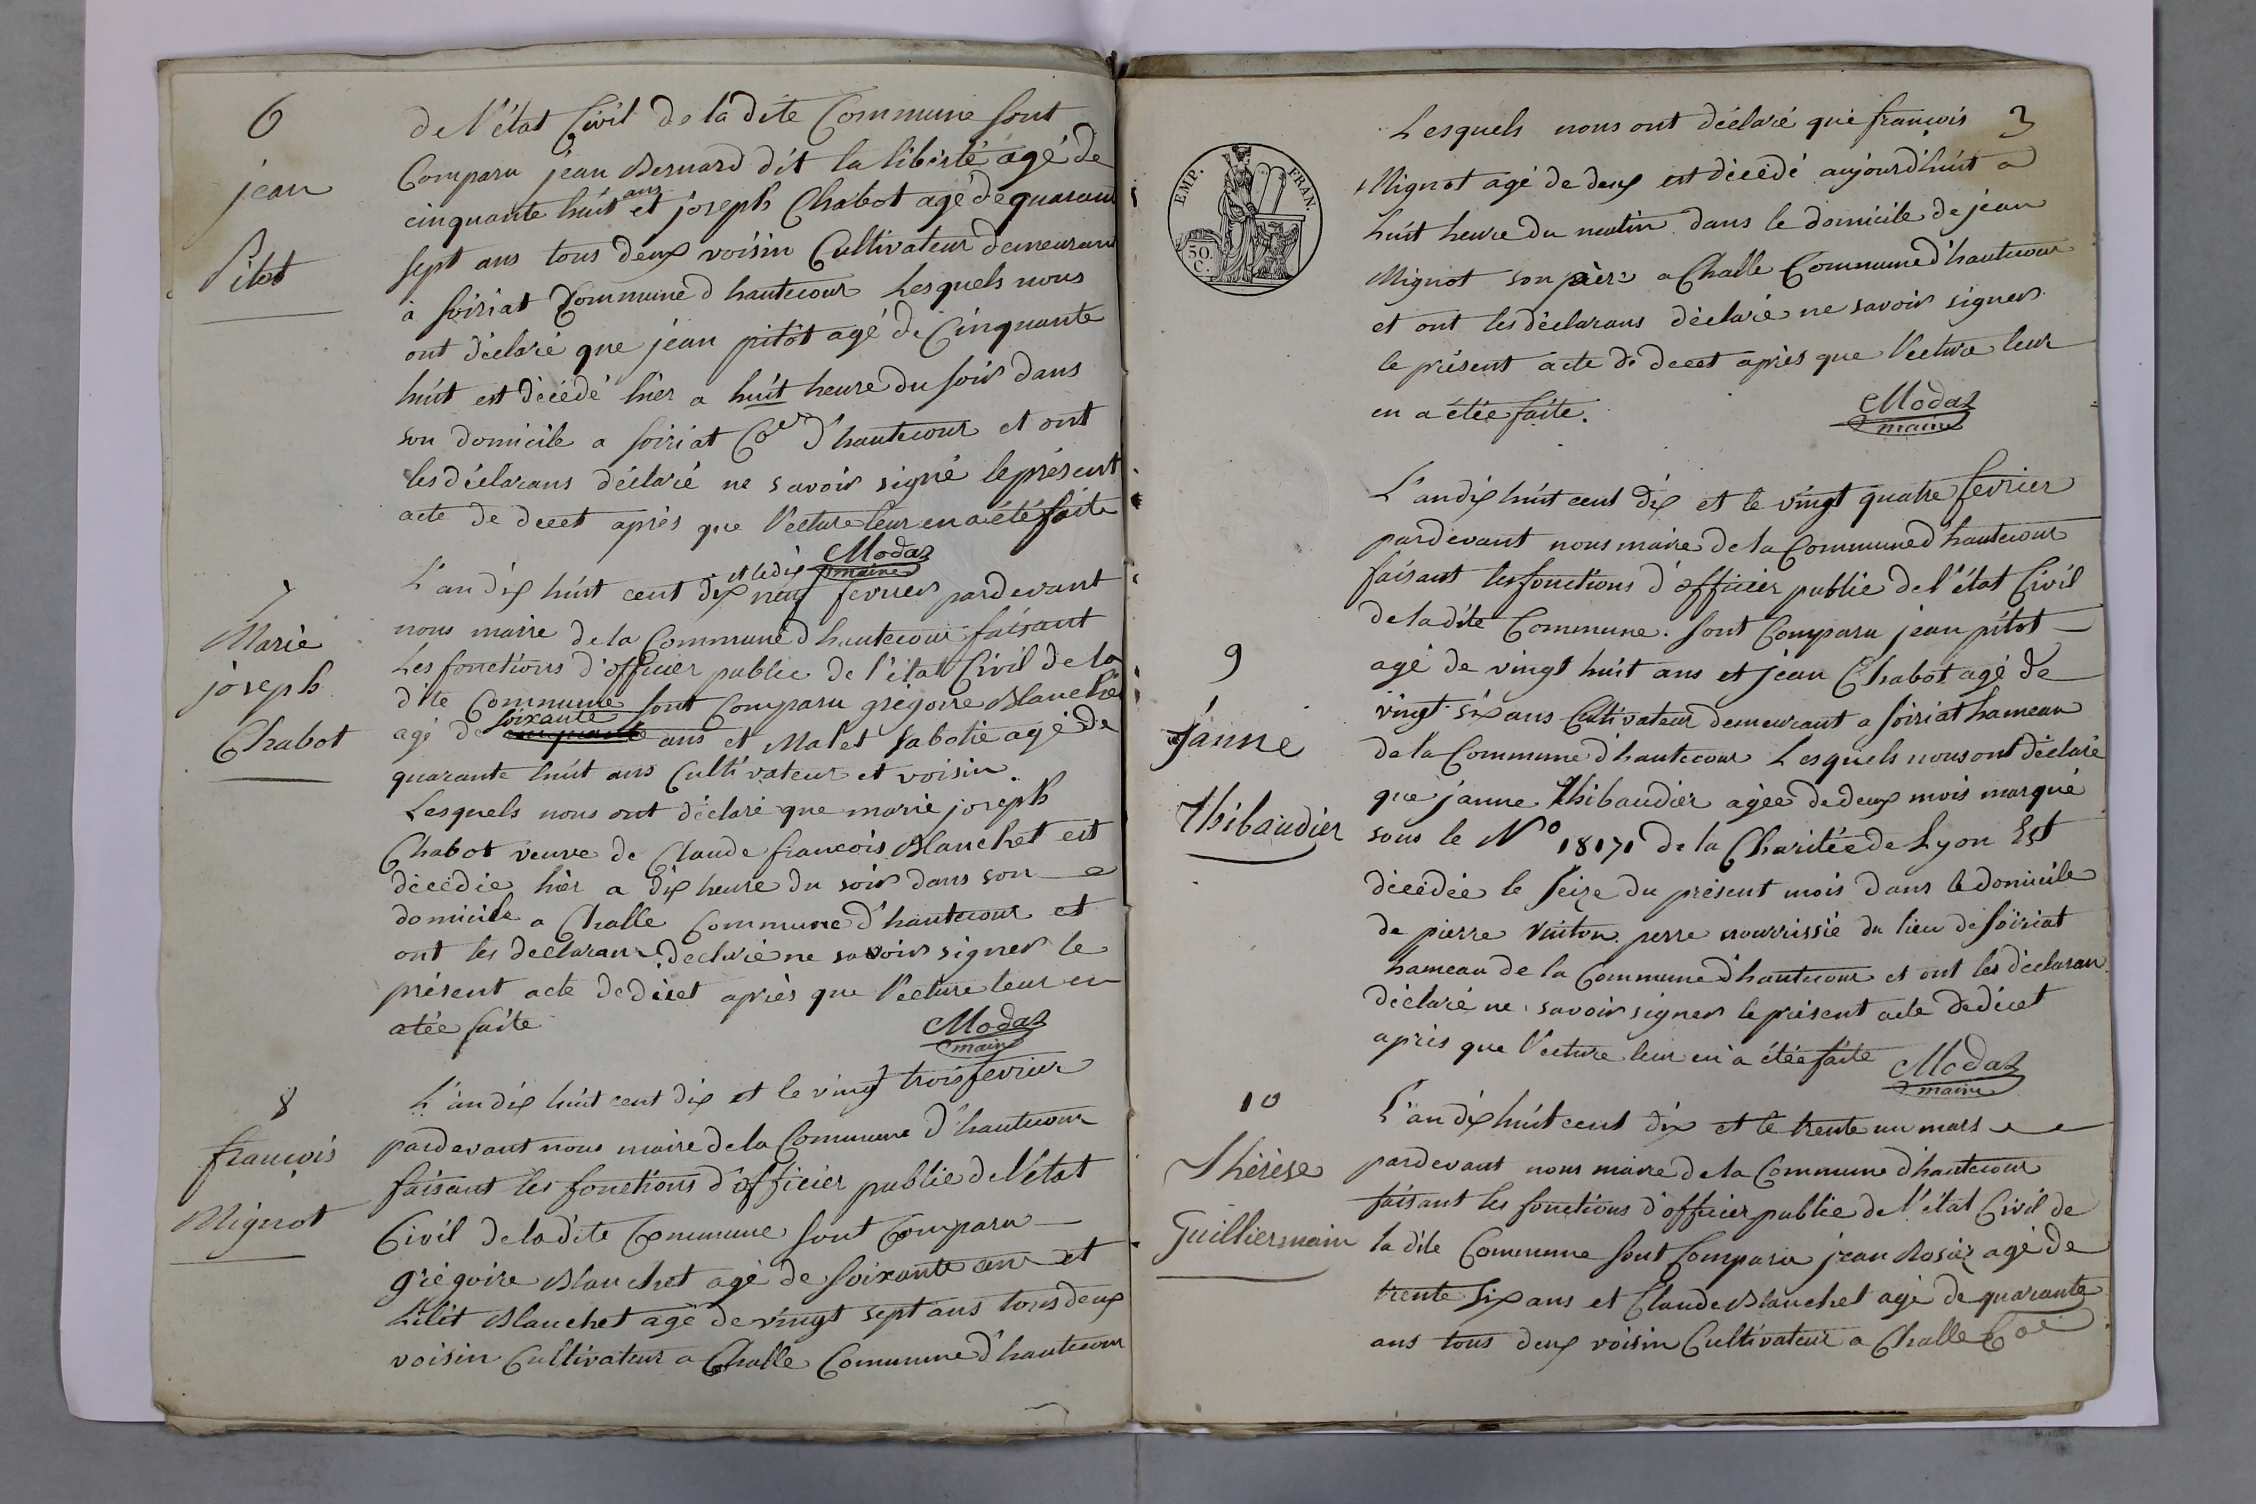 6
jean
Pitot
de l'état Civil de la dite Commune sont
Comparu jean Bernard dit la liberté agé de
cinquante huit ans et joseph Chabot agé de quarant
sept ans tous deux voisin Cultivateur demeurant
à soiriat Commune d'hautecour Lesquels nous
ont déclaré que jean pitôt agé de Cinquante
huit est décédé hier a huit heure du soir dans
son domicile a soiriat Coe d'hautecour et ont
les déclarans déclaré ne savoir signé le présent
acte de decet après que l'ecture leur en a été faite
Modas
maire
7
Marie
joseph
Chabot
L'an dix huit cent dix et le dix neuf fevrier pardevant
nous maire de la Commune d'hautecour faisant
Les fonctions d'officier public de l'état Civil de la
dite Commune sont Comparu grégoire Blanchet
agé de cinquante soixante ans et Malet Sabotié agé de
quarante huit ans Cultivateur et voisin.
Lesquels nous ont déclaré que marie joseph
Chabot veuve de Claude francois Blanchet est
décédée hier a dix heure du soir dans son
domicile a Challe Commune d'hautecour et
ont les declarans declaré ne savoir signer le
présent acte de décet après que l'ecture leur en
a tée faite
Modas
maire
8
françois
Mignot
L'an dix huit cent dix et le vingt trois fevrier
pardevant nous maire de la Commune d'hautecour
faisant les fonctions d'officier public de l'état
Civil de la dite Commune sont Comparu
grégoire Blanchet agé de soixante ans et
Blanchet agé de vingt sept ans tous deux
voisin Cultivateur a Challe Commune d'hautecour
3
EMP. FRAN.
50.
C.
Lesquels nous ont déclaré que françois
Mignot agé de deux est décédé aujourd'huit a
huit heure du matin dans le domicile de jean
Mignot son père a Challe Commune d'hautecour
et ont les déclarans déclaré ne savoir signer
le présent acte de decet après que l'ecture leur
en a étée faite.
Modas
maire
9
janne
Thibaudier
L'an dix huit cent dix et le vingt quatre fevrier
pardevant nous maire de la Commune d'hautecour
faisant les fonctions d'officier public de l'état Civil
de la dite Commune. sont Comparu jean pitot
agé de vingt huit ans et jean Chabot agé de
vingt six ans Cultivateur demeurant a soiriat hameau
de la Commune d'hautecour Lesquels nous ont déclaré
que janne Thibaudier agée de deux mois marqué
sous le No 18171 de la Charitée de Lyon Est
décédée le seize du présent mois dans le domicile
de pierre Vuiton perre nourrissié du lieu de soiriat
hameau de la Commune d'hautecour et ont les déclaran
déclaré ne savoir signer le présent acte de décet
après que l'ecture leur en a étée faite
Modas
maire
10
Thérèse
Guilliermain
L'an dix huit cent dix et le trente un mars
pardevant nous maire de la Commune d'hautecour
faisant les fonctions d'officier public de l'état Civil de
la dite Commune sont Comparu jean Rosier agé de
trente six ans et Claude Blanchet agé de quarante
ans tous deux voisin Cultivateur a Challe Coe